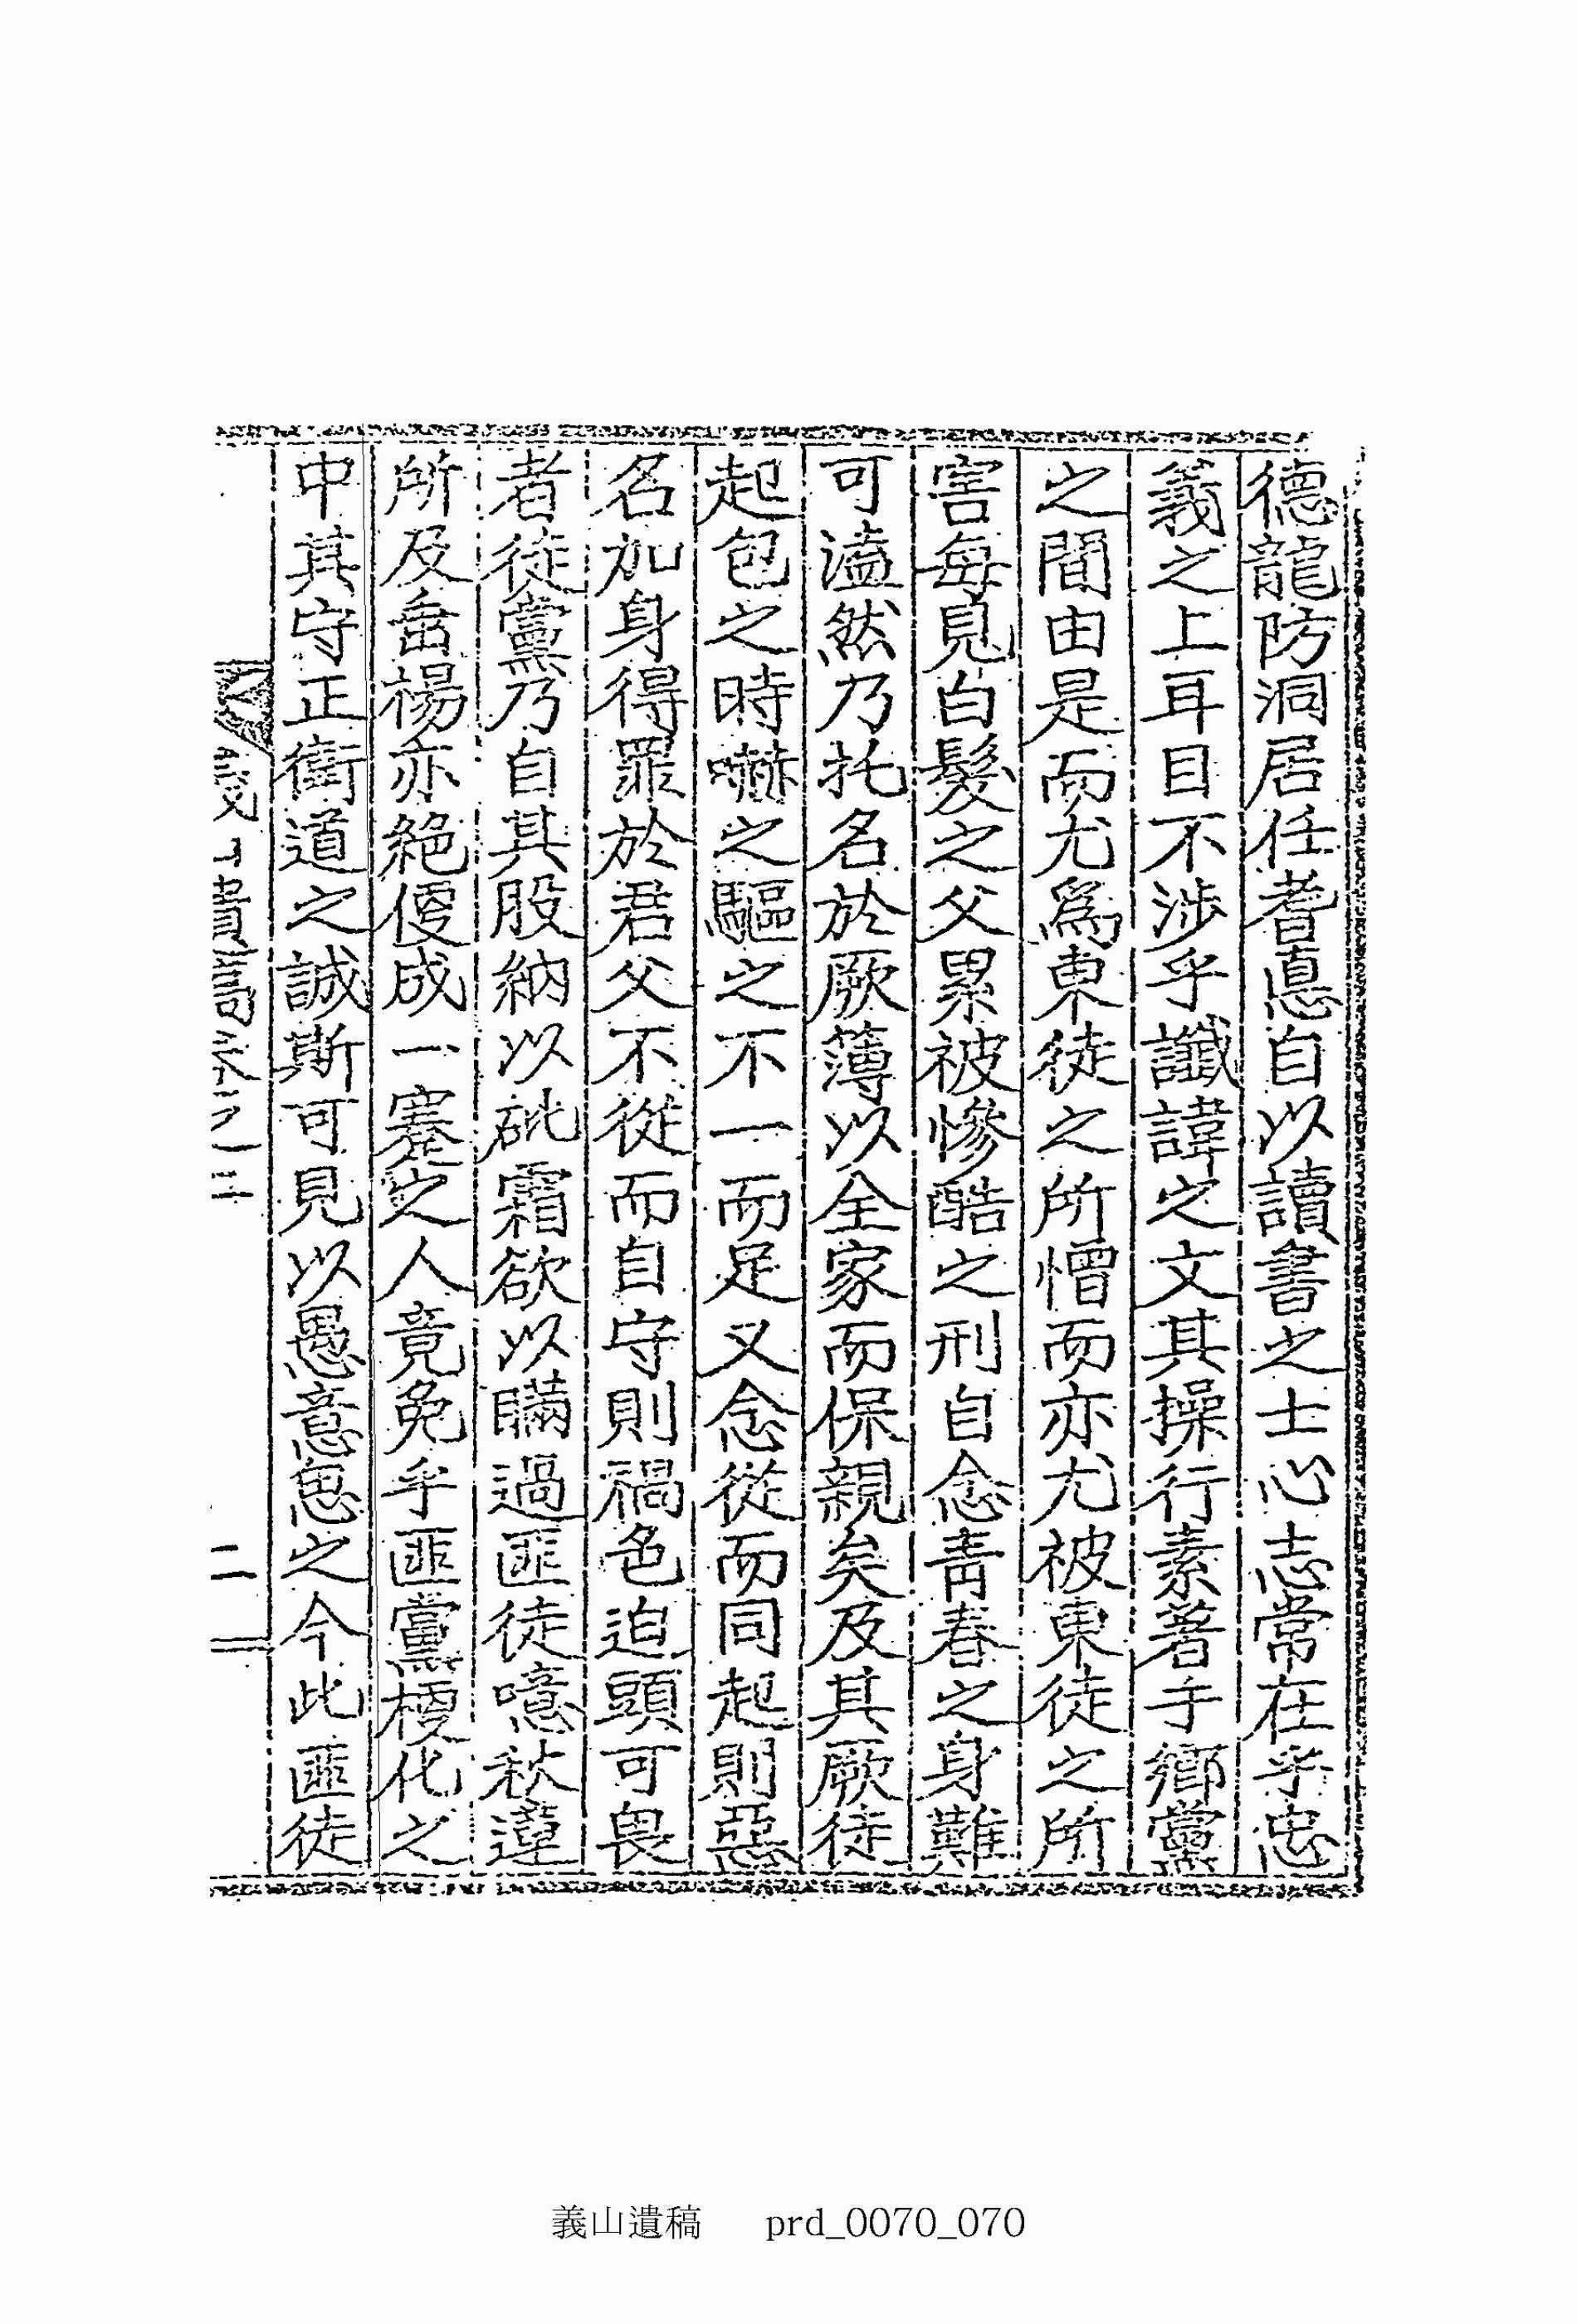 德龍防洞居任耆憙自以讀書之士心志常在乎忠
義之上耳目不涉乎讖諱之文其操行素著于鄉黨
之間由是而尤爲東徒之所憎而亦尤被東徒之所
害每見白髮之父累被慘酷之刑自念靑春之身難
可溘然乃托名於厥簿以全家而保親矣及其厥徒
起包之時嚇之驅之不一而足又念從而同起則惡
名加身得罪於君父不從而自守則禍色迫頭可畏
者徒黨乃自其股納以砒霜欲以瞞過匪徒噫秋蓬
所及垂楊亦絶優成一蹇之人竟免乎匪黨梗化之
中其守正衛道之誠斯可見以愚意思之今此匪徒
義山遺稿卷之三
二
義山遺稿 prd_0070_070